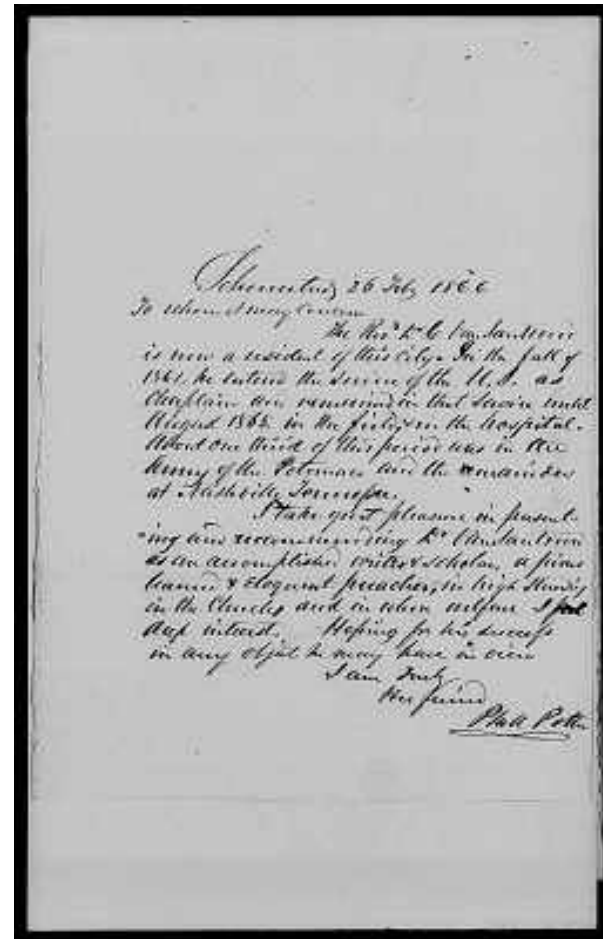 Schenectady 26 Feby 1866
To whom it may Concern
The Revd Dr C Van Santvoord
is now a resident of this City. In the fall of
1861. he entered the Service of the U.S. as
Chaplain and remained in that Service until
August 1865. in the field & in the hospital.
About one third of this period was in the
Army of the Potomac and the remainder
at Nashville Tennessee.
I take great pleasure in present-
ing and recommending Dr Van Santvoord
as an accomplished writer & scholar, a pious
learned & eloquent preacher, in high standing
in the Church, and in whose welfare I feel
deep interest. Hoping for his success
in any object he may have in view
I am truly
His friend
Platt Potter